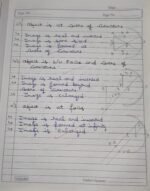 Object is at centre of curvature
Image is real and inverted
Image is same sized
Image is formed at
centre of curvature
Object is b/w Focus and centre of
curvature
Image is real and inverted
Image is formed beyond
centre of curvature
Image is enlarged
Object is at focus
Image is real and inverted
Image is formed at infinity
Image is enlarged